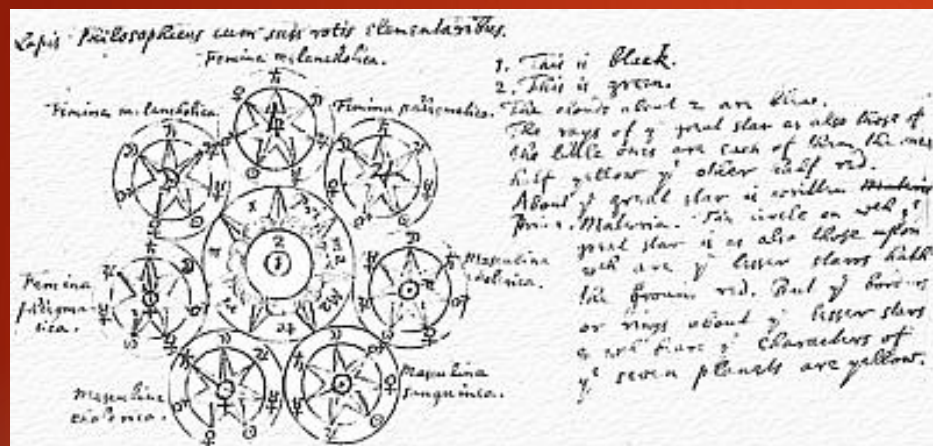 Lapis Philosophicus cum suis rotis elementaribus.
Femina melancholica.
Femina melancholica.
Femina phlegmatica.
Femina
phlegma-
tica.
Masculina
cholerica.
Masculina
sanguinea.
Masculina
1. This is black.
2. This is green.
The clouds about 2 are blue.
The rays of yᵉ great star as also those of
the little ones are each of them the one
half yellow yᵉ other half red.
About yᵉ great star is written
Prima Materia. The circle on wᶜʰ yᵉ
great star is as also those upon
wᶜʰ are yᵉ lesser stars hath
the ground red. But yᵉ borders
or rings about yᵉ lesser stars
wᶜʰ bears yᵉ characters of
yᵉ seven planets are yellow.